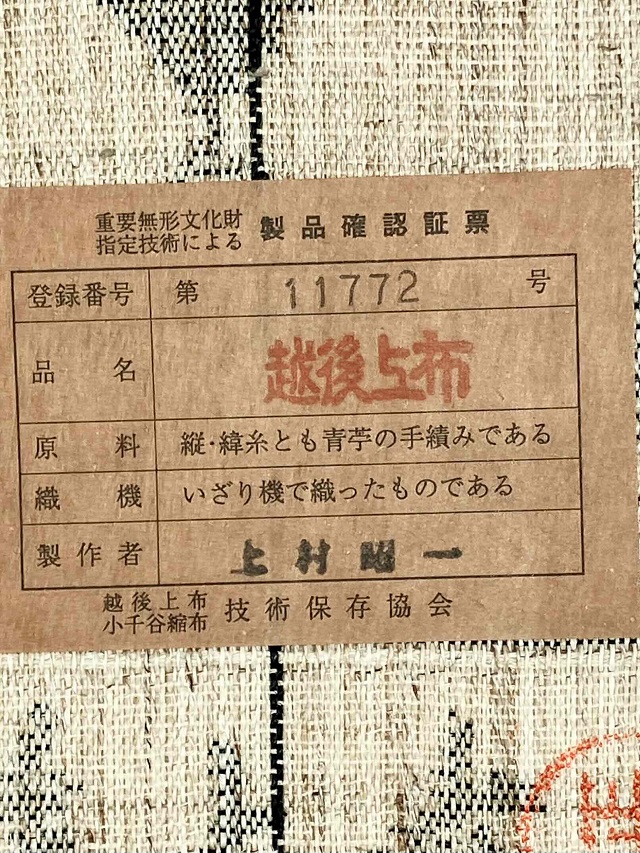 重要無形文化財
指定技術による 製品確認証票
登録番号 第 11772 号
品名 越後上布
原料 縦・緯糸とも青苧の手績みである
織機 いざり機で織ったものである
製作者 上村昭一
越後上布
小千谷縮布 技術保存協会